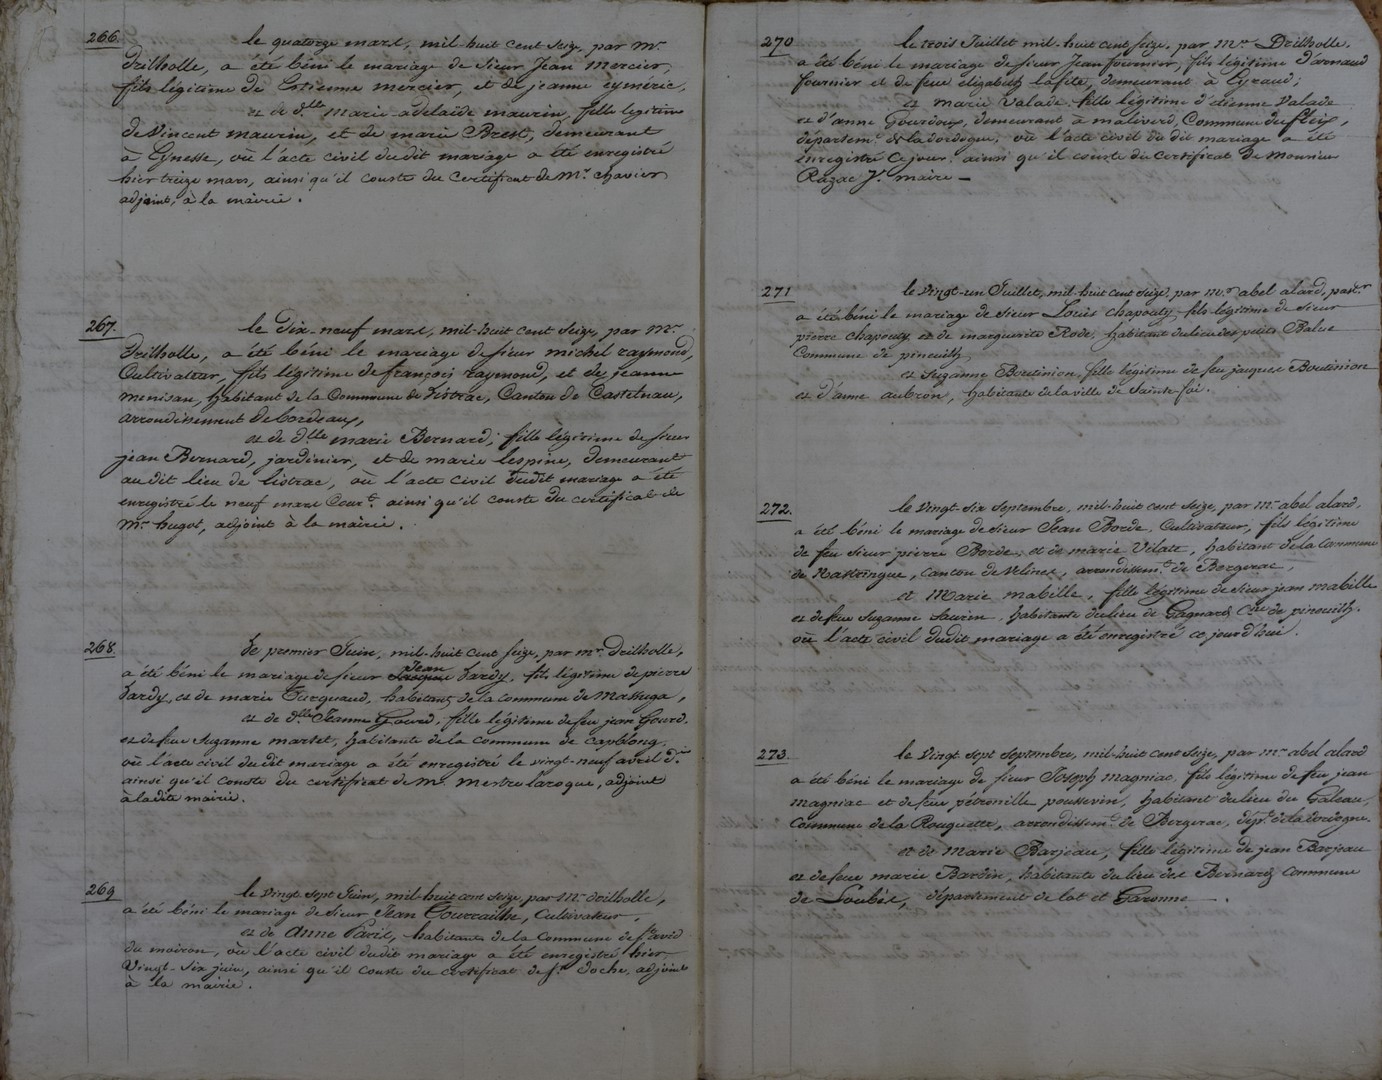 266.
le quatorze mars, mil-huit cent seize, par mr.
Drilholle, a été béni le mariage de sieur Jean mercier,
fils légitime de Estienne mercier, et de jeanne eyméric,
et de dlle marie-adelaïde maurin, fille légitime
de Vincent maurin, et de marie Brest, demeurant
à Eynesse, où l'acte civil dudit mariage a été enregistré
hier treize mars, ainsi qu'il conste du Certificat de Mr. chavier
adjoint, à la mairie.
267.
le dix-neuf mars, mil-huit cent seize, par mr.
Drilholle, a été béni le mariage de sieur michel raymond,
Cultivateur, fils légitime de françois raymond, et de jeanne
menisan, habitant de la Commune de listrac, Canton de Castelnau,
arrondissement de bordeaux,
et de dlle marie Bernard, fille légitime de sieur
jean Bernard, jardinier, et de marie lespine, demeurant
au dit lieu de listrac, où l'acte civil dudit mariage a été
enregistré le neuf mars Cour.t ainsi qu'il conste du certificat de
mr. hugot, adjoint à la mairie.
268.
le premier Juin, mil-huit cent seize, par mr. drilholle,
a été béni le mariage de sieur Jean Lardy, fils légitime de pierre
Lardy, et de marie Turquaud, habitant de la commune de Massuga,
et de dlle Jeanne Gourd, fille légitime de feu jean Gourd.
et de feue suzanne martet, habitante de la commune de caplong,
où l'acte civil du dit mariage a été enregistré le vingt-neuf avril d.er
ainsi qu'il conste du certificat de mr. mestre laroque, adjoint
à la dite mairie.
269
le vingt sept Juin, mil-huit cent seize, par mr. drilholle,
a été béni le mariage de sieur Jean Courrailhe, Cultivateur,
et de Anne Paris, habitants de la Commune de st. avid
du moiron, où l'acte civil dudit mariage a été enregistré hier
Vingt-six juin, ainsi qu'il conste du certificat de sr. doche, adjoint
à la mairie.
270
le trois Juillet mil-huit cent seize, par mr. Drilholle,
a été béni le mariage de sieur Jean fournier, fils légitime d'arnaud
fournier et de feue elizabeth lafite, demeurant à Eyraud;
et marie Valade, fille légitime d'etienne Valade
et d'anne Gourdoux, demeurant à maliverd, Commune du fleix,
départem.t de la dordogne, où l'acte civil du dit mariage a été
enregistré ce jour, ainsi qu'il conste du certificat de monsieur
Razac Je. maire —
271
le vingt-un Juillet, mil-huit cent seize, par mr. abel alard, past.r
a été béni le mariage de sieur Louis chapouty, fils légitime de sieur
pierre chapouty et de marguerite Rode, habitant du lieu des petits Balue
commune de pineuilh
et Suzanne Boutinion, fille légitime de feu jacques Boutinion
et d'anne aubron, habitante de la ville de Sainte-foi.
272.
le vingt six septembre, mil-huit cent seize, par mr. abel alard,
a été béni le mariage de sieur Jean Borde, Cultivateur, fils légitime
de feu sieur pierre Borde, et de marie Vilatt, habitant de la commune
de Nastringue, canton de Vélines, arrondissem.t de Bergerac,
et Marie mabille, fille légitime de sieur jean mabille
et de feue suzanne Saurin, habitante du lieu de Gagnard, Cne de pineuilh.
où l'acte civil dudit mariage a été enregistré ce jourd'hui.
273.
le vingt sept septembre, mil-huit cent seize, par mr. abel alard
a été béni le mariage de sieur Joseph magniac, fils légitime de feu jean
magniac et de feue pétronille poussevin, habitant du lieu du Galeau,
commune de la Rouquette, arrondissem.t de Bergerac, dépt. de la dordogne.
et de Marie Barjeau, fille légitime de jean Barjeau
et de feue marie Bardin, habitante du lieu des Bernards, commune
de Loubès, département de lot et Garonne.